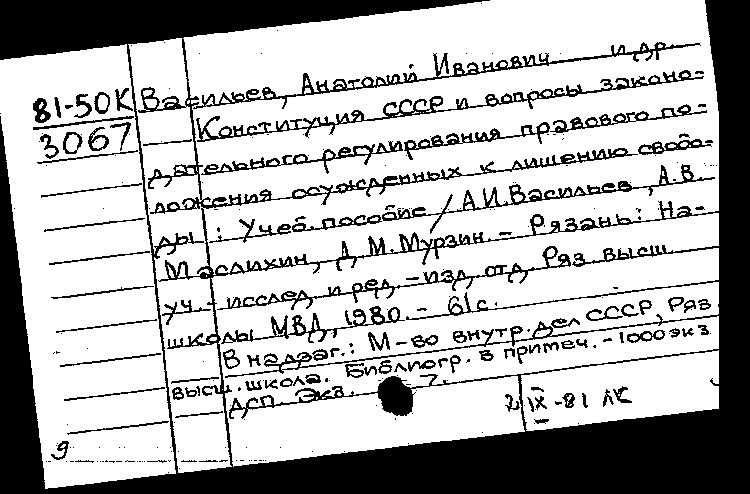 81-50К Васильев, Анатолий Иванович и др.
3067 Конституция СССР и вопросы законо-
дательного регулирования правового по-
ложения осужденных к лишению свобо-
ды : Учеб. пособие / А.И. Васильев, А.В.
Маслихин, Д.М. Мурзин. - Рязань : На-
уч.-исслед. и ред.-изд. отд. Ряз. высш.
школы МВД, 1980. - 61 с.
В надзаг.: М-во внутр. дел СССР, Ряз.
высш. школа. Библиогр. в примеч. - 1000 экз.
ДСП. Экз. 7.
2/IX-81
9